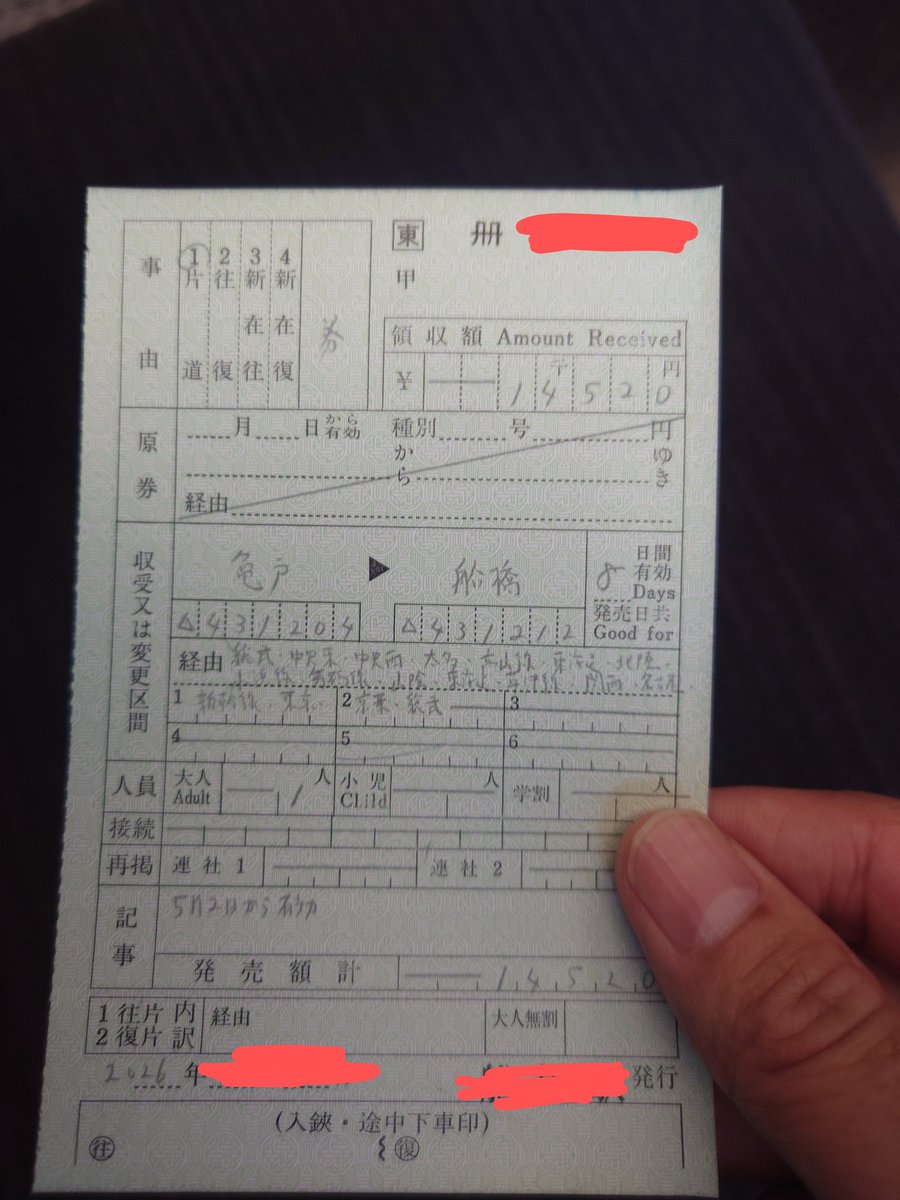 事由
1 片道
2 往復
3 新在往
4 新在復
券
東 冊
甲
領収額 Amount Received
¥ 千 円
14520
原券
月 日から有効 種別 号 円
から ゆき
経由
収受又は変更区間
亀戸 ▶ 船橋
8 日間有効 Days
発売日共 Good for
△431204 △431212
経由 総武・中央東・中央西・太多・高山線・東海道・北陸・
小浜線・舞鶴線・山陰・東海道・草津線・関西・名古屋
1 新幹線・東京・ 2 京葉・総武 3
4 5 6
人員 大人 Adult 1 人 小児 Child 人 学割 人
接続
再掲 連社1 連社2
記事 5月2日から有効
発売額計 14520
1 往片 内訳 経由 大人無割
2 復片
2026年 発行
(入鋏・途中下車印)
往 復